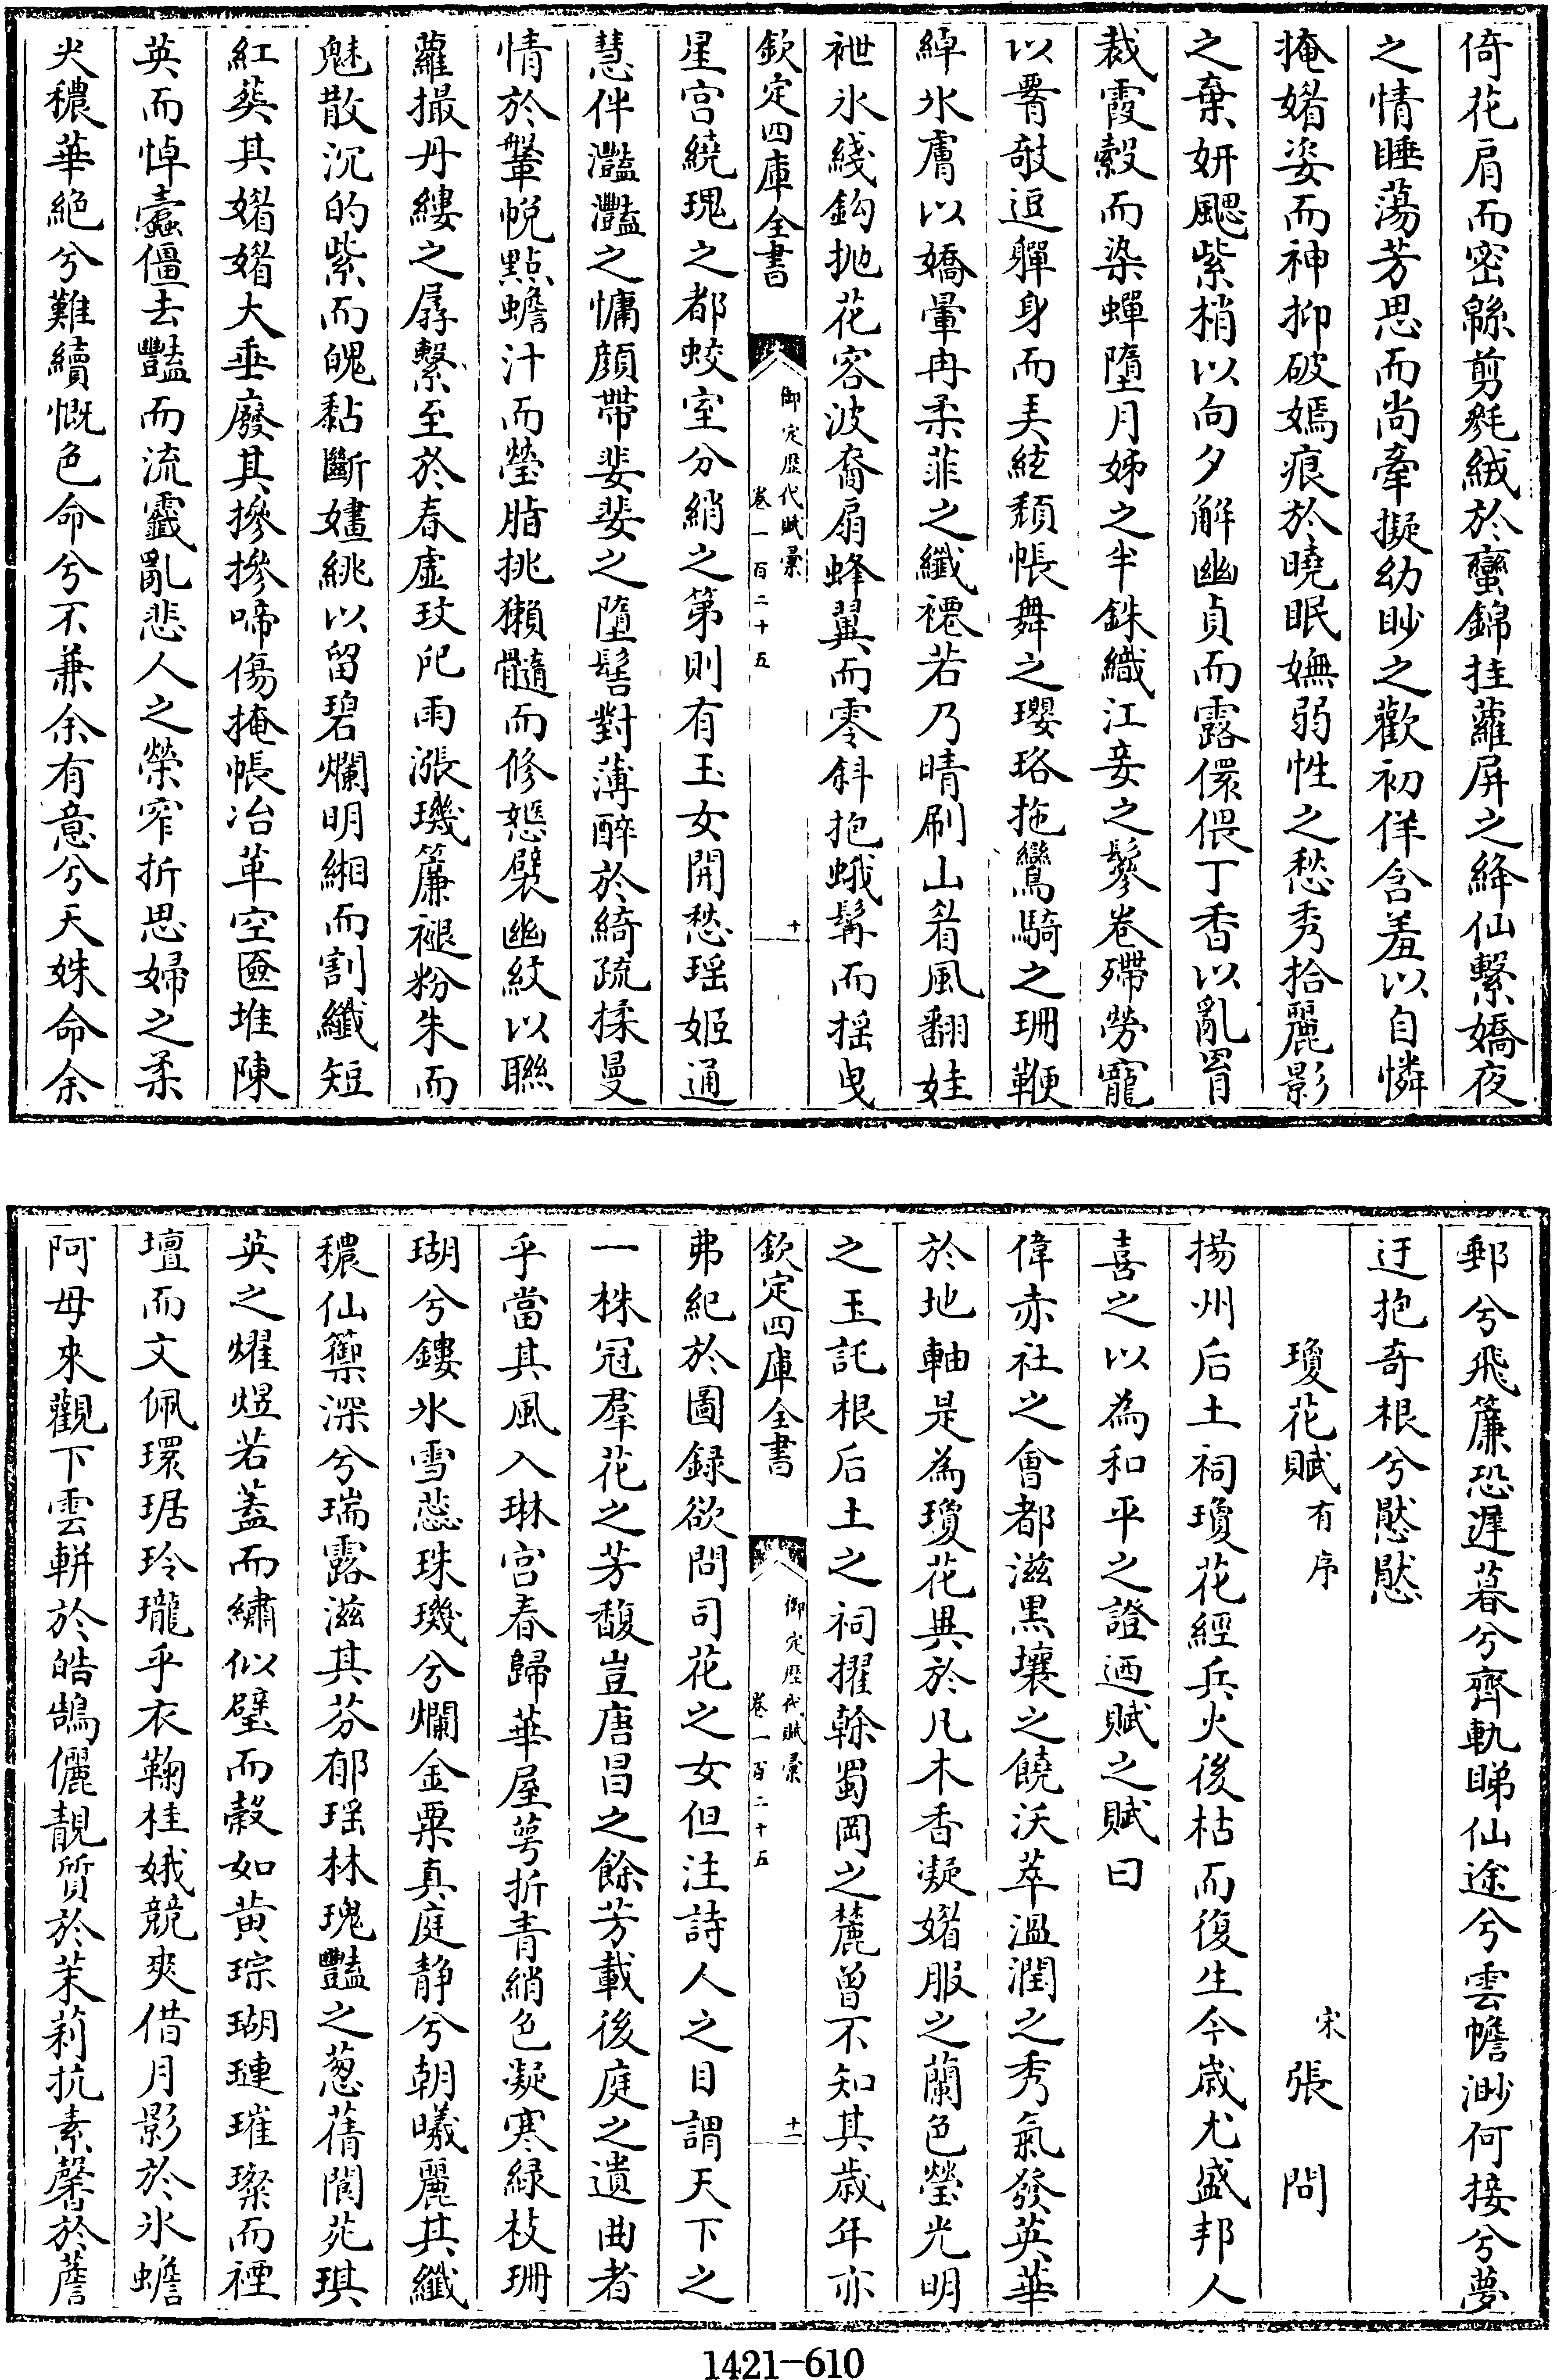 倚花肩而密緜剪毵絨於蠻錦挂蘿屏之絳仙繫嬌夜
之情睡蕩芳思而尚牽擬幼眇之歡初佯含羞以自憐
掩婿姿而神抑破嫣痕於曉眠嫵弱性之愁秀拾麗影
之棄妍颸紫梢以向夕解幽貞而露儇偎丁香以亂罥
裁霞縠而染蟬墮月姊之半銖織江妾之鬖卷殢勞寵
以罯敧逗軃身而美紝頹帳舞之瓔珞拖鸞騎之珊鞭
綽氷膚以嬌暈冉柔菲之纖襹若乃晴刷山眘風翻娃
袣氷綫鈎拋花容波裔扇蜂翼而零斜抱蛾髯而揺曳
欽定四庫全書 御定歴代賦彙 卷一百二十五 十
星宫繞瑰之都蛟室分綃之第則有玉女開愁瑶姬通
慧伴灎灩之慵顔帶婓婓之墮髻對薄醉於綺疏揉曼
情於鞶帨點蟾汁而瑩脂挑獺髓而修慝襞幽紋以聯
蘿撮丹縷之孱繫至於春虚玫戺雨漲璣簾褪粉朱而
魅散沉的紫而魄黏斷嫿絩以留碧爛明緗而割纖短
紅葵其婿婿大垂廢其摻摻啼傷掩帳冶革空匳堆陳
英而悼蠧僵去豔而流靈亂悲人之榮窄折思婦之柔
火穠華絶兮難續慨色命兮不兼余有意兮天姝命余
郵兮飛簾恐遲暮兮齊軌睇仙途兮雲幨渺何接兮夢
迂抱奇根兮懕懕
瓊花賦有序 宋張問
揚州后土祠瓊花經兵火後枯而復生今歳尤盛邦人
喜之以為和平之證迺賦之賦曰
偉赤社之㑹都滋黒壤之饒沃萃溫潤之秀氣發英華
於地軸是為瓊花異於凡木香凝婿服之蘭色瑩光明
之玉託根后土之祠擢幹蜀岡之麓曾不知其歳年亦
欽定四庫全書 御定歴代賦彙 卷一百二十五 十一
弗紀於圖録欲問司花之女但注詩人之目謂天下之
一株冠羣花之芳馥豈唐昌之餘芳載後庭之遺曲者
乎當其風入琳宫春歸華屋萼折青綃色凝寒緑枝珊
瑚兮鏤氷雪蕊珠璣兮爛金粟真庭静兮朝曦麗其纖
穠仙籞深兮瑞露滋其芬郁瑶林瑰豔之葱蒨閬苑琪
英之燿煜若蓋而繡似璧而縠如黄琮瑚璉璀璨而禋
壇而文佩環琚玲瓏乎衣鞠桂娥競爽借月影於氷蟾
阿母來觀下雲軿於皓鵠儷靚質於茉莉抗素馨於薝
1421-610